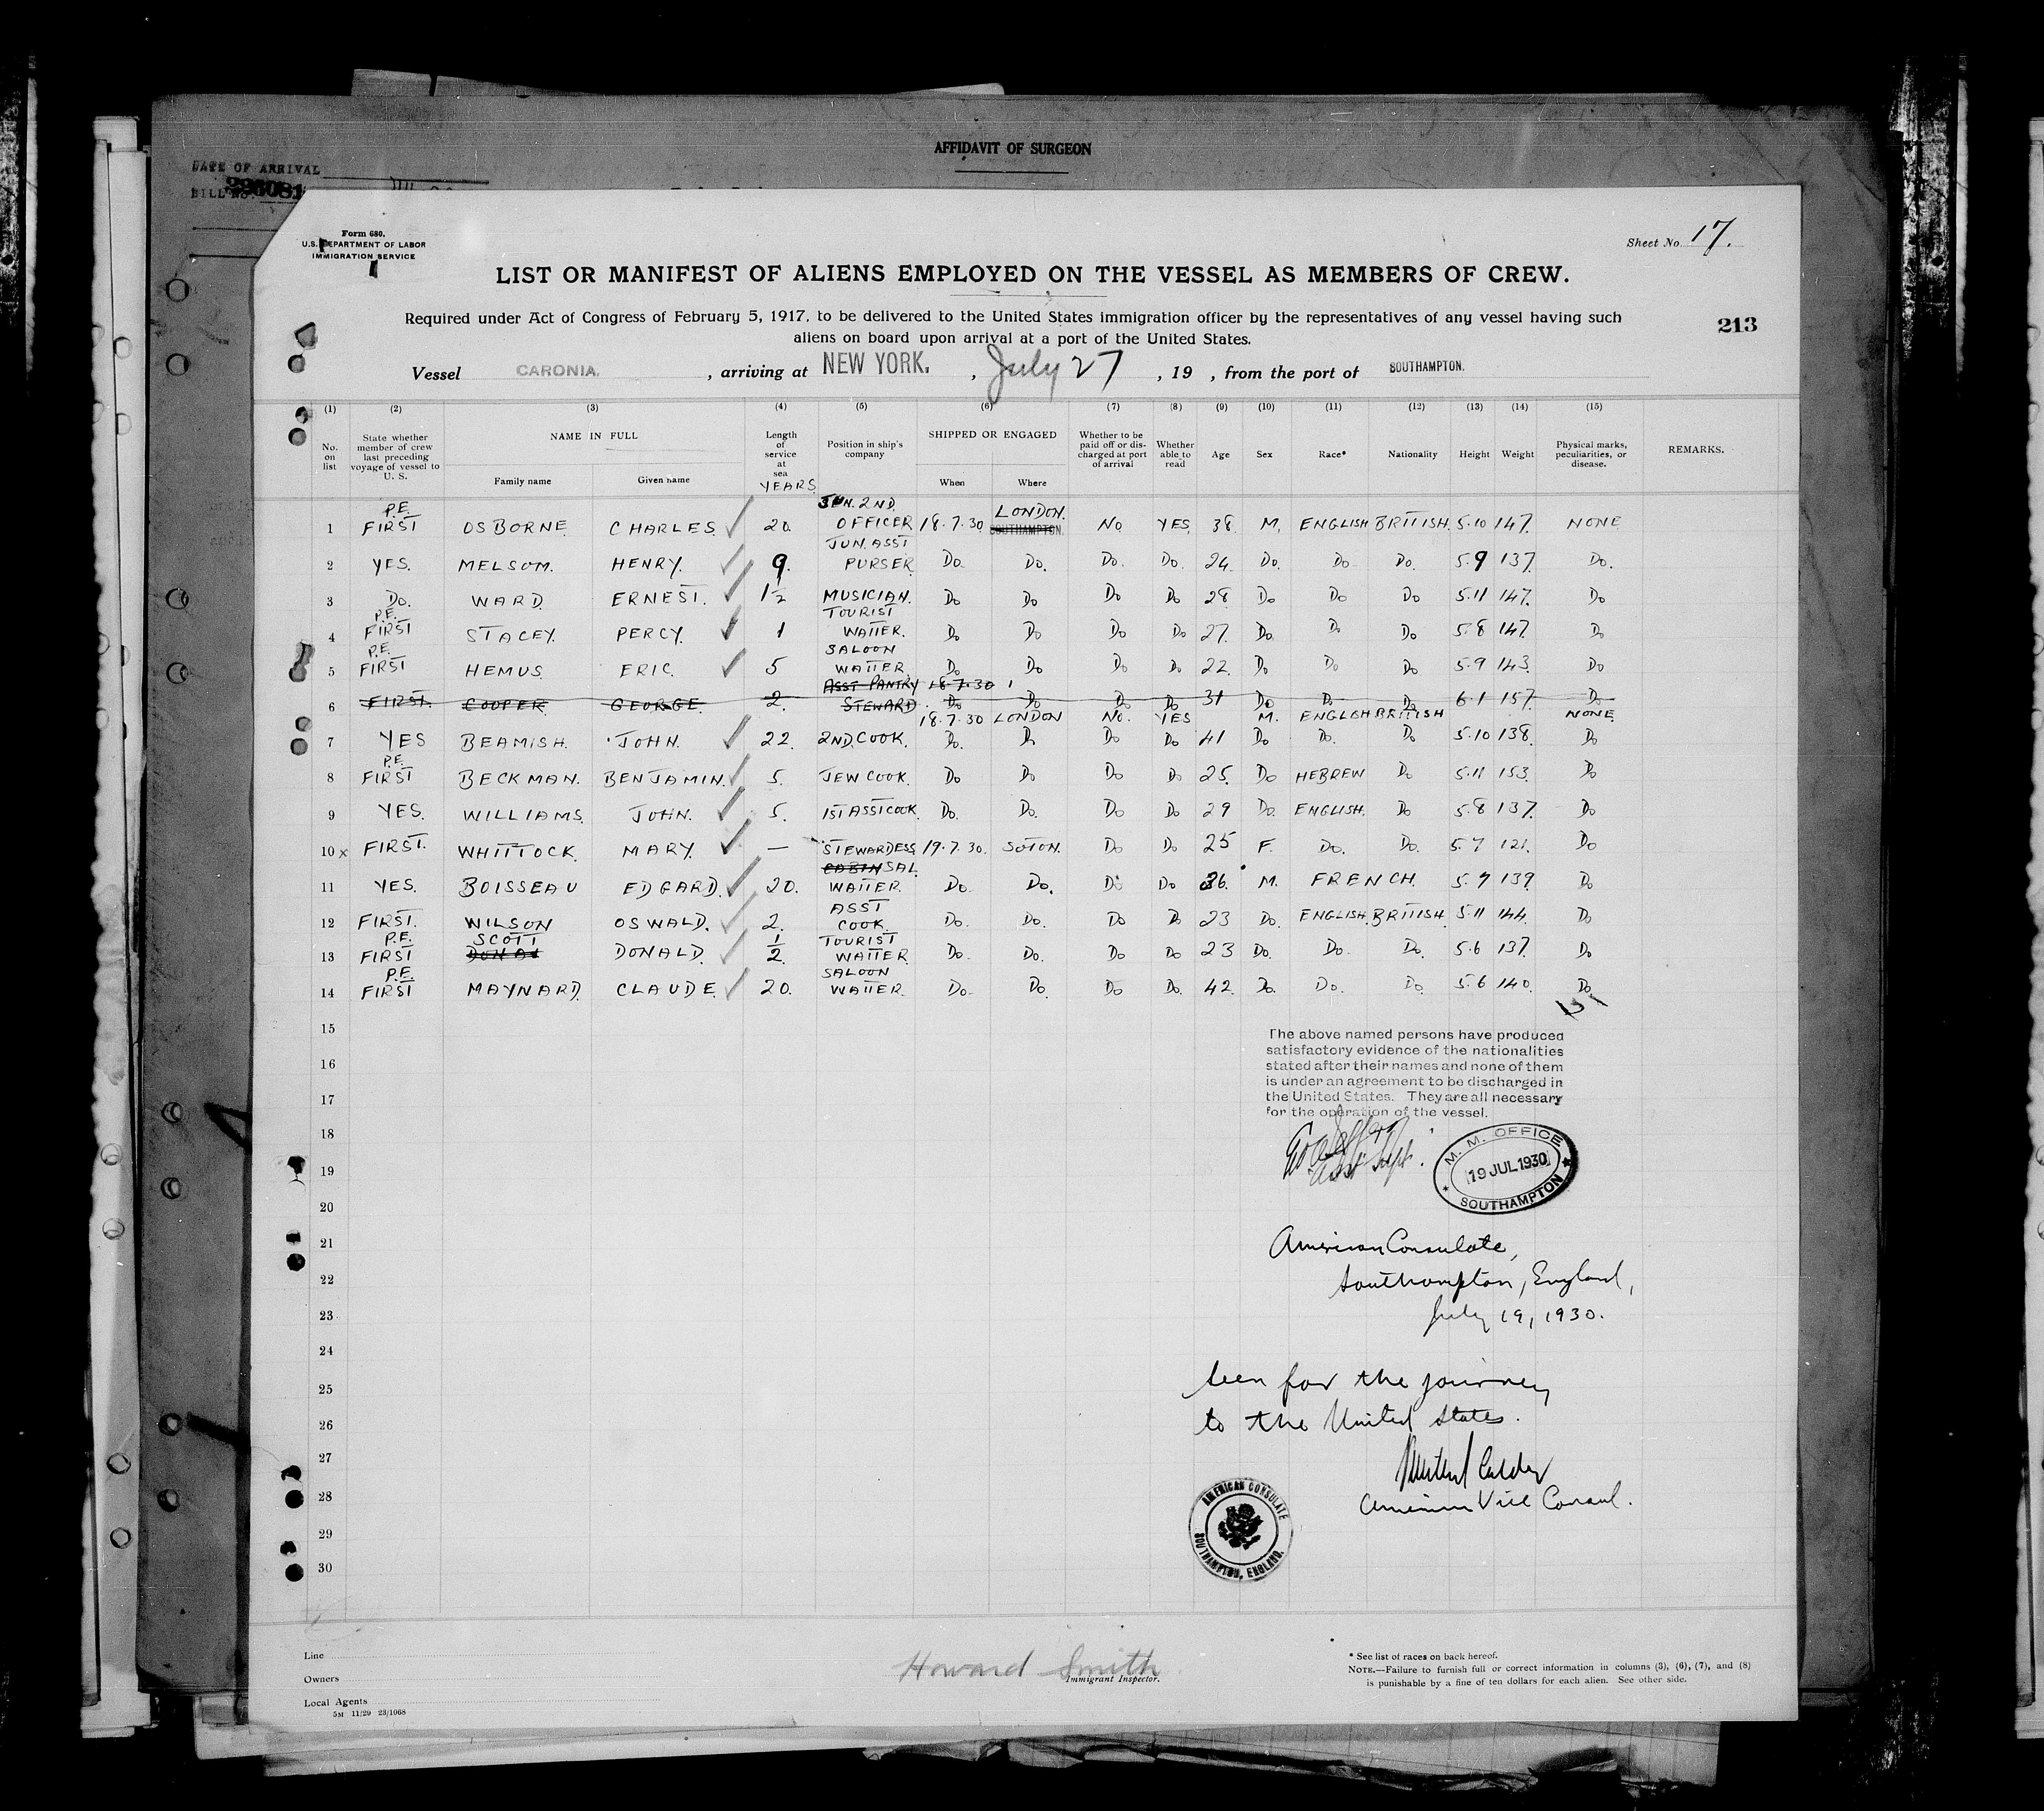 AFFIDAVIT OF SURGEON
DATE OF ARRIVAL
BILL NO. 226081
Form 680.
U.S. DEPARTMENT OF LABOR
IMMIGRATION SERVICE
Sheet No. 17.
LIST OR MANIFEST OF ALIENS EMPLOYED ON THE VESSEL AS MEMBERS OF CREW.
Required under Act of Congress of February 5, 1917, to be delivered to the United States immigration officer by the representatives of any vessel having such
aliens on board upon arrival at a port of the United States.
213
Vessel CARONIA. , arriving at NEW YORK. , July 27 , 19 , from the port of SOUTHAMPTON.
(1) (2) (3) (4) (5) (6) (7) (8) (9) (10) (11) (12) (13) (14) (15)
No. on list State whether member of crew last preceding voyage of vessel to U. S. NAME IN FULL Family name Given name Length of service at sea YEARS Position in ship's company SHIPPED OR ENGAGED When Where Whether to be paid off or discharged at port of arrival Whether able to read Age Sex Race* Nationality Height Weight Physical marks, peculiarities, or disease. REMARKS.
1 P.E. FIRST OSBORNE CHARLES 20. JUN. 2ND. OFFICER 18.7.30 LONDON. SOUTHAMPTON. NO YES 38. M. ENGLISH BRITISH. 5.10 147. NONE
2 YES. MELSOM. HENRY. 9. JUN. ASST PURSER Do. Do. Do. Do. 24. Do. Do Do. 5.9 137. Do.
3 Do. WARD. ERNEST. 1½ MUSICIAN. Do Do Do Do 28 Do Do Do 5.11 147. Do
4 P.E. FIRST STACEY. PERCY. 1 TOURIST WAITER. Do Do Do Do 27. Do. Do Do 5.8 147. Do
5 P.E. FIRST HEMUS. ERIC. 5 SALOON WAITER Do Do Do Do 22. Do Do Do 5.9 143. Do
6 FIRST. COOPER. GEORGE. 2. ASST PANTRY STEWARD 18.7.30 Do Do Do Do 31 Do Do Do 6.1 157. Do
18.7.30 LONDON NO. YES M. ENGLISH BRITISH NONE
7 YES BEAMISH. JOHN. 22. 2ND. COOK. Do. Do Do Do 41 Do Do. Do 5.10 138. Do
8 P.E. FIRST BECKMAN. BENJAMIN. 5. JEW COOK. Do Do Do Do 25. Do HEBREW Do 5.11 153. Do
9 YES. WILLIAMS. JOHN. 5. 1ST ASST COOK. Do. Do. Do Do 29 Do. ENGLISH. Do 5.8 137. Do
10 x FIRST. WHITTOCK. MARY. — STEWARDESS 19.7.30. SOTON. Do Do 25 F. Do. Do. 5.7 121. Do
11 YES. BOISSEAU EDGARD. 20. CABIN SAL. WAITER. Do. Do. Do Do 36. M. FRENCH. 5.7 139. Do
12 FIRST. WILSON OSWALD. 2. ASST COOK. Do. Do. Do Do 23 Do. ENGLISH. BRITISH. 5.11 144. Do
13 P.E. FIRST SCOTT DONALD. ½ TOURIST WAITER. Do. Do. Do Do 23 Do. Do. Do. 5.6 137. Do
14 P.E. FIRST MAYNARD. CLAUDE. 20. SALOON WAITER. Do. Do. Do Do. 42. Do. Do. Do. 5.6 140. Do.
15
16
17
18
19
20
21
22
23
24
25
26
27
28
29
30
The above named persons have produced
satisfactory evidence of the nationalities
stated after their names and none of them
is under an agreement to be discharged in
the United States. They are all necessary
for the operation of the vessel.
Asst Supt.
M. M. OFFICE
19 JUL 1930
SOUTHAMPTON
American Consulate,
Southampton, England,
July 19, 1930.
Seen for the journey
to the United States.
American Vice Consul.
AMERICAN CONSULATE
SOUTHAMPTON, ENGLAND.
Line
Owners
Local Agents
5M 11/29 23/1068
Howard Smith
Immigrant Inspector.
* See list of races on back hereof.
NOTE.—Failure to furnish full or correct information in columns (3), (6), (7), and (8)
is punishable by a fine of ten dollars for each alien. See other side.